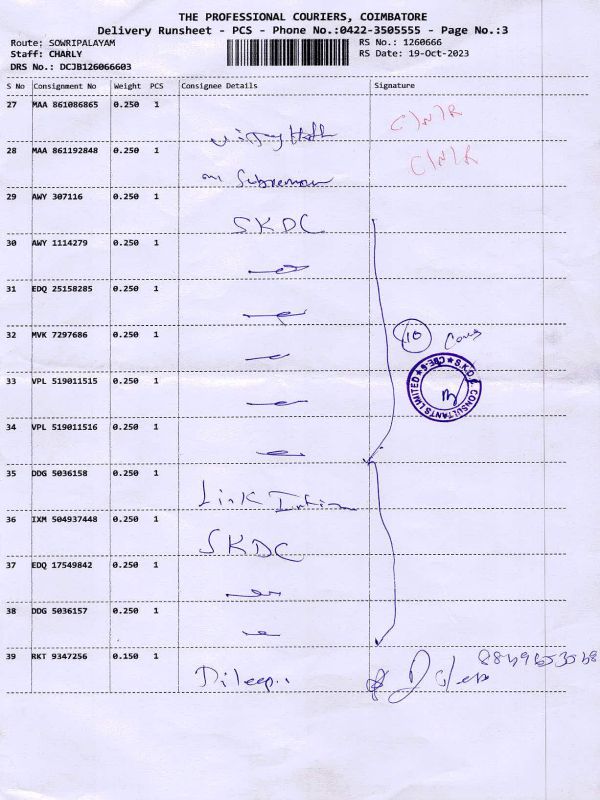 THE PROFESSIONAL COURIERS, COIMBATORE
Delivery Runsheet - PCS - Phone No.:0422-3505555 - Page No.:3
Route: SOWRIPALAYAM RS No.: 1260666
Staff: CHARLY RS Date: 19-Oct-2023
DRS No.: DCJB126066603
S No Consignment No Weight PCS Consignee Details Signature
27 MAA 861086865 0.250 1 C/N/R
28 MAA 861192848 0.250 1 C/N/R
29 AWY 307116 0.250 1 SKDC
30 AWY 1114279 0.250 1
31 EDQ 25158285 0.250 1
32 MVK 7297686 0.250 1 10
33 VPL 519011515 0.250 1 S.K.D.C CONSULTANTS LIMITED ★ CBE-6 ★
34 VPL 519011516 0.250 1
35 DDG 5036158 0.250 1 Link Intime
36 IXM 504937448 0.250 1 SKDC
37 EDQ 17549842 0.250 1
38 DDG 5036157 0.250 1
39 RKT 9347256 0.150 1 Dileep